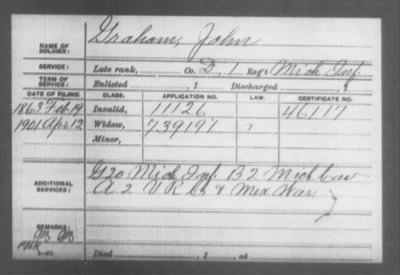 NAME OF SOLDIER: Graham, John
SERVICE: Late rank, Co. D, 1 Reg't Mich Inf
TERM OF SERVICE: Enlisted , 1 Discharged , 1
DATE OF FILING. CLASS. APPLICATION NO. LAW. CERTIFICATE NO.
1863 Feb 19 Invalid, 11126 46117
1901 Apr 12 Widow, 739197
Minor,
ADDITIONAL SERVICES: G 20 Mich Inf B 2 Mich Cav
A 2 U R C & Mex War
REMARKS:
Died , 1 , at